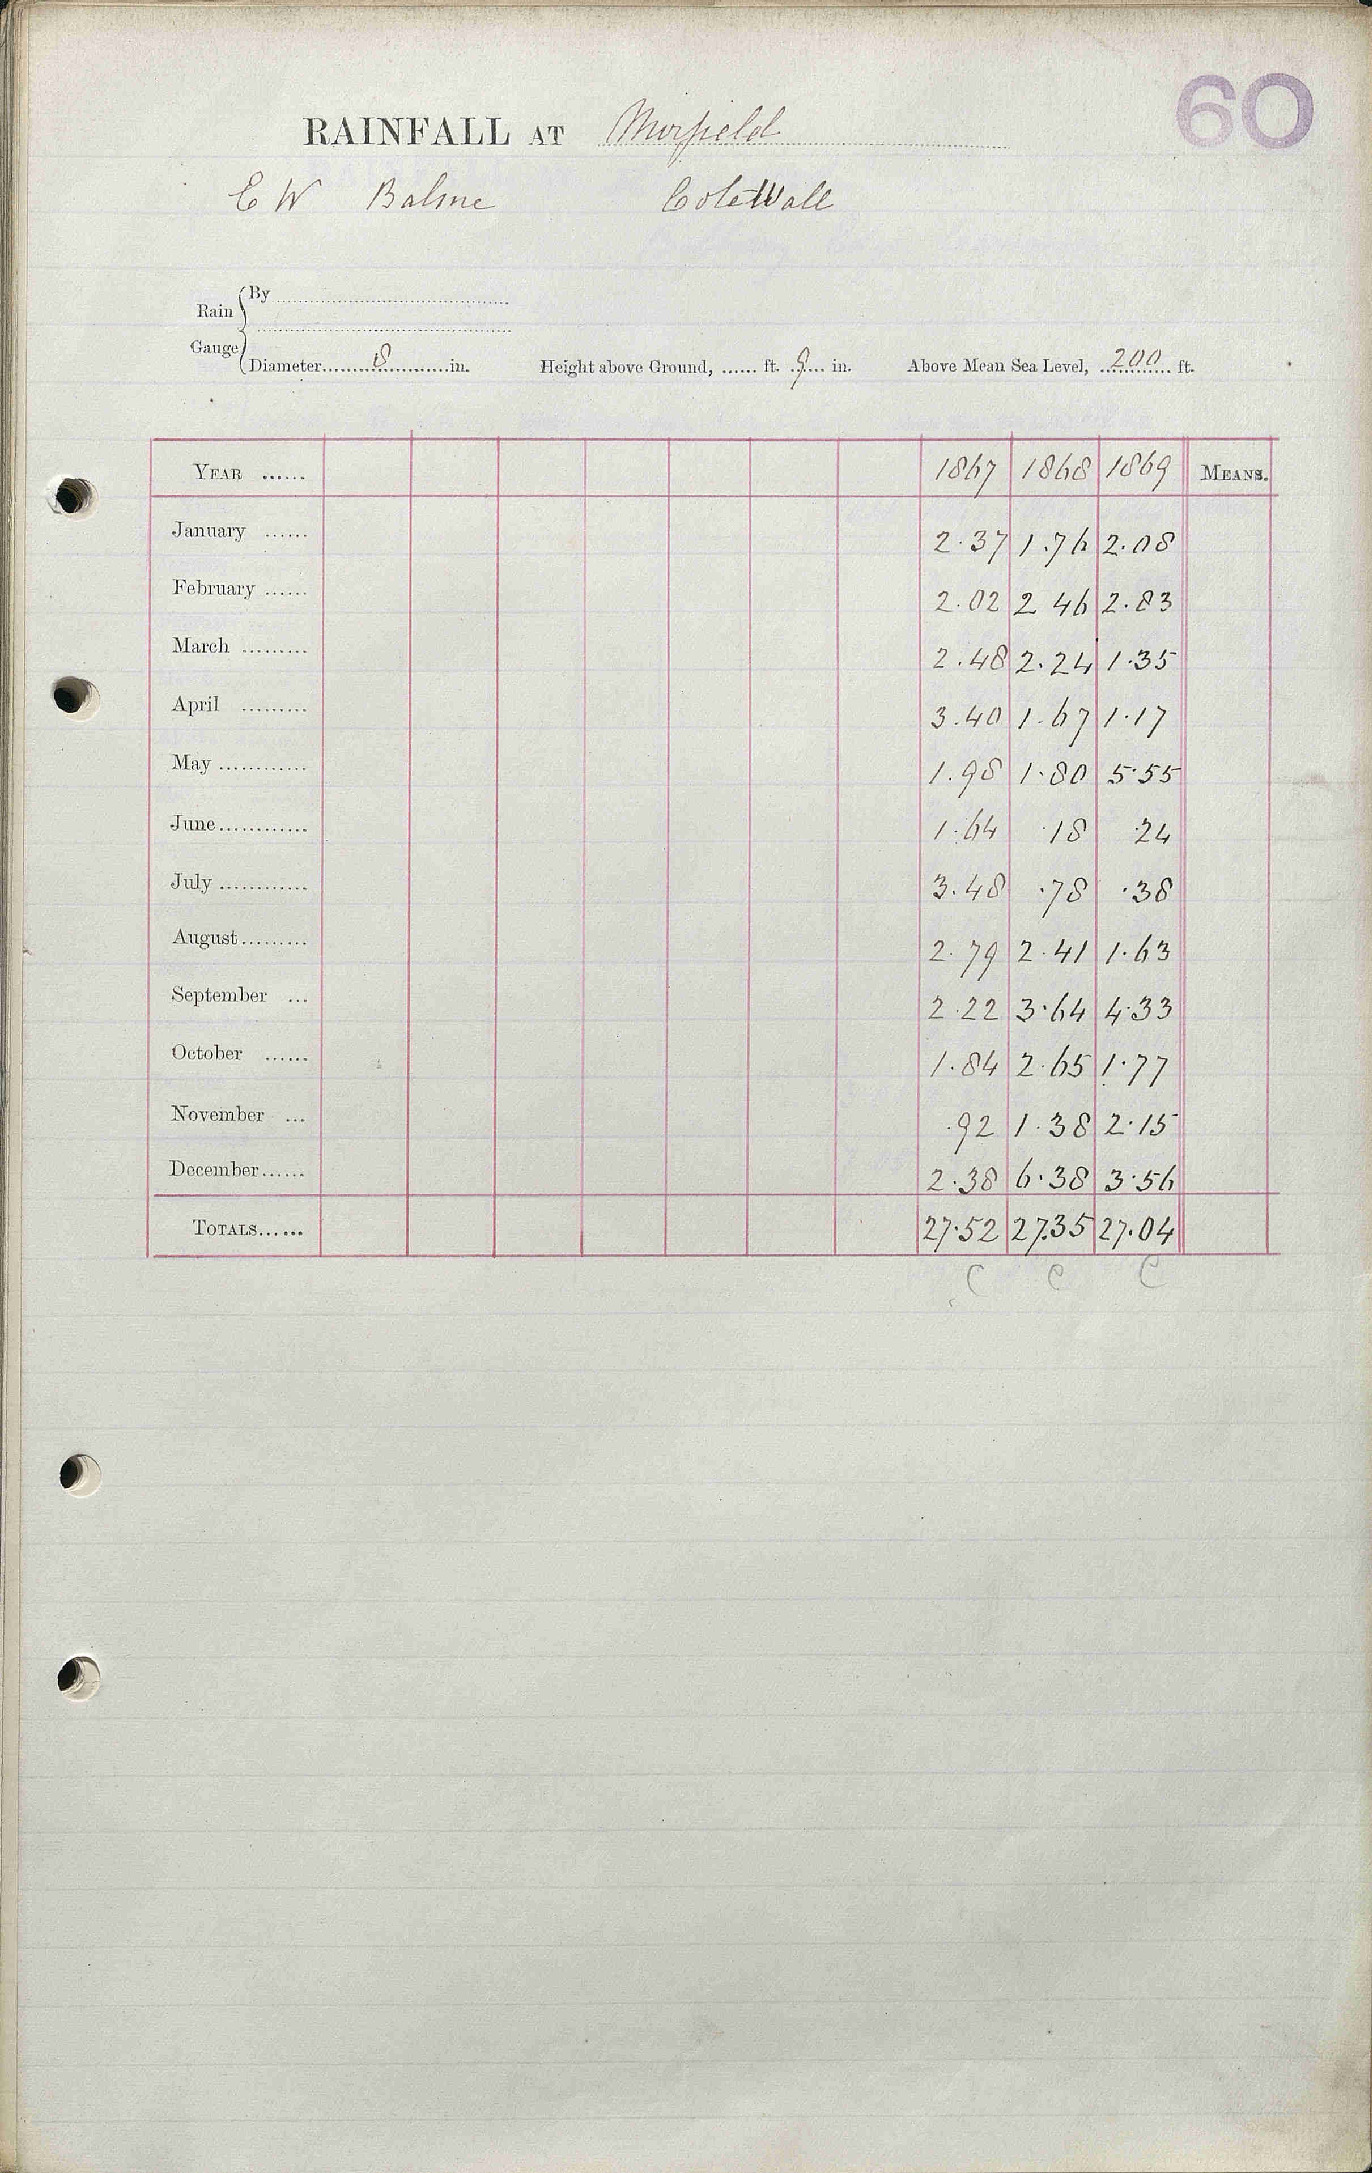 60
RAINFALL AT Mirfield
E W Balme Cote Wall
Rain Gauge
By
Diameter 8 in. Height above Ground, ...... ft. 9 in. Above Mean Sea Level, 200 ft.
YEAR ...... 1867 1868 1869 MEANS.
January ...... 2.37 1.76 2.08
February ...... 2.02 2 46 2.83
March ......... 2.48 2.24 1.35
April ......... 3.40 1.67 1.17
May ............ 1.98 1.80 5.55
June............ 1.64 .18 .24
July ............ 3.48 .78 .38
August......... 2.79 2.41 1.63
September ... 2.22 3.64 4.33
October ...... 1.84 2.65 1.77
November ... .92 1.38 2.15
December...... 2.38 6.38 3.56
TOTALS...... 27.52 27.35 27.04
C C C